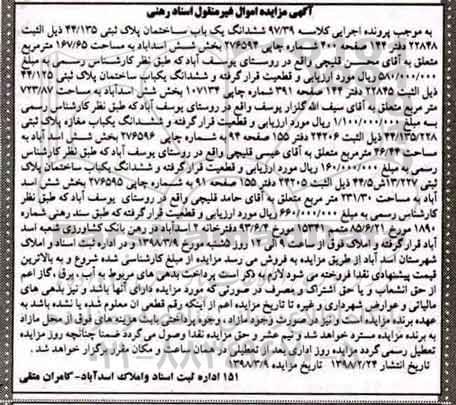 آگهی مزایده اموال غیرمنقول اسناد رهنی
به موجب پرونده اجرایی کلاسه ۹۷/۳۹ ششدانگ یک باب ساختمان پلاک ثبتی ۴۴/۱۳۵ ذیل الثبت
۲۲۸۴۸ دفتر ۱۴۴ صفحه ۴۰۰ شماره چاپی ۲۷۶۵۹۴ بخش شش اسدآباد به مساحت ۱۶۷/۶۵ مترمربع
متعلق به آقای محسن قلیچی واقع در روستای یوسف آباد که طبق نظر کارشناس رسمی به مبلغ
۵۸۰/۰۰۰/۰۰۰ ریال مورد ارزیابی و قطعیت قرار گرفته و ششدانگ یکباب ساختمان پلاک ثبتی ۴۴/۱۲۵
ذیل الثبت ۲۲۸۴۵ دفتر ۱۴۴ صفحه ۳۹۱ شماره چاپی ۱۰۷۱۳۴ بخش شش اسد آباد به مساحت ۷۲۳/۸۷
متر مربع متعلق به آقای سیف الله گلزار یوسف واقع در روستای یوسف آباد که طبق نظر کارشناس رسمی
به مبلغ ۱/۱۰۰/۰۰۰/۰۰۰ ریال مورد ارزیابی و قطعیت قرار گرفته و ششدانگ یکباب مغازه پلاک ثبتی
۴۴/۱۳۵/۲۲۸ ذیل الثبت ۲۴۲۰۶ دفتر ۱۵۵ صفحه ۹۴ به شماره چاپی ۲۷۶۵۹۶ بخش شش اسد آباد به
مساحت ۴۶/۴۴ مترمربع متعلق به آقای عیسی قلیچی واقع در روستای یوسف آباد که طبق نظر کارشناس
رسمی به مبلغ ۱۶۰/۰۰۰/۰۰۰ ریال مورد ارزیابی و قطعیت قرار گرفته و ششدانگ یکباب ساختمان پلاک
ثبتی ۴۴/۵ ذیل الثبت ۲۴۲۰۵ دفتر ۱۵۵ صفحه ۹۱ به شماره چاپی ۲۷۶۵۹۵ بخش شش اسد
آباد به مساحت ۲۳۱/۳۰ متر متعلق به آقای حامد قلیچی واقع در روستای یوسف آباد که طبق نظر
کارشناس رسمی به مبلغ ۶۶۰/۰۰۰/۰۰۰ ریال مورد ارزیابی و قطعیت قرار گرفته که طبق سند رهنی شماره
۱۸۹۰ مورخ ۸۵/۶/۲۱ متمم ۱۵۳۴۱ مورخ ۹۳/۶/۴ دفترخانه ۲ اسدآباد در رهن بانک کشاورزی شعبه اسد
آباد قرار گرفته و املاک فوق از ساعت ۹ الی ۱۲ روز شنبه مورخ ۱۳۹۸/۳/۹ و در اداره ثبت اسناد و املاک
شهرستان اسد آباد از طریق مزایده به فروش می رسد مزایده از مبلغ کارشناسی شده شروع و به بالاترین
قیمت پیشنهادی نقدا فروخته می شود لازم به ذکر است پرداخت بدهی های مربوط به آب، برق، گاز اعم
از حق انشعاب و یا حق اشتراک و مصرف در صورتی که مورد مزایده دارای آنها باشد و نیز بدهی های
مالیاتی و عوارض شهرداری و غیره تا تاریخ مزایده اعم از اینکه رقم قطعی آن معلوم شده یا نشده باشد به
عهده برنده مزایده است و نیز در صورت وجود مازاد، وجوه پرداختی بابت هزینه های فوق از محل مازاد
به برنده مزایده مسترد خواهد شد و نیم عشر و حق مزایده نقدا وصول می گردد ضمنا چنانچه روز مزایده
تعطیل رسمی گردد مزایده روز اداری بعد از تعطیلی در همان ساعت و مکان مقرر برگزار خواهد شد.
تاریخ انتشار ۱۳۹۸/۲/۲۴ تاریخ مزایده ۱۳۹۸/۳/۹
۱۵۱ اداره ثبت اسناد واملاک اسدآباد- کامران متقی